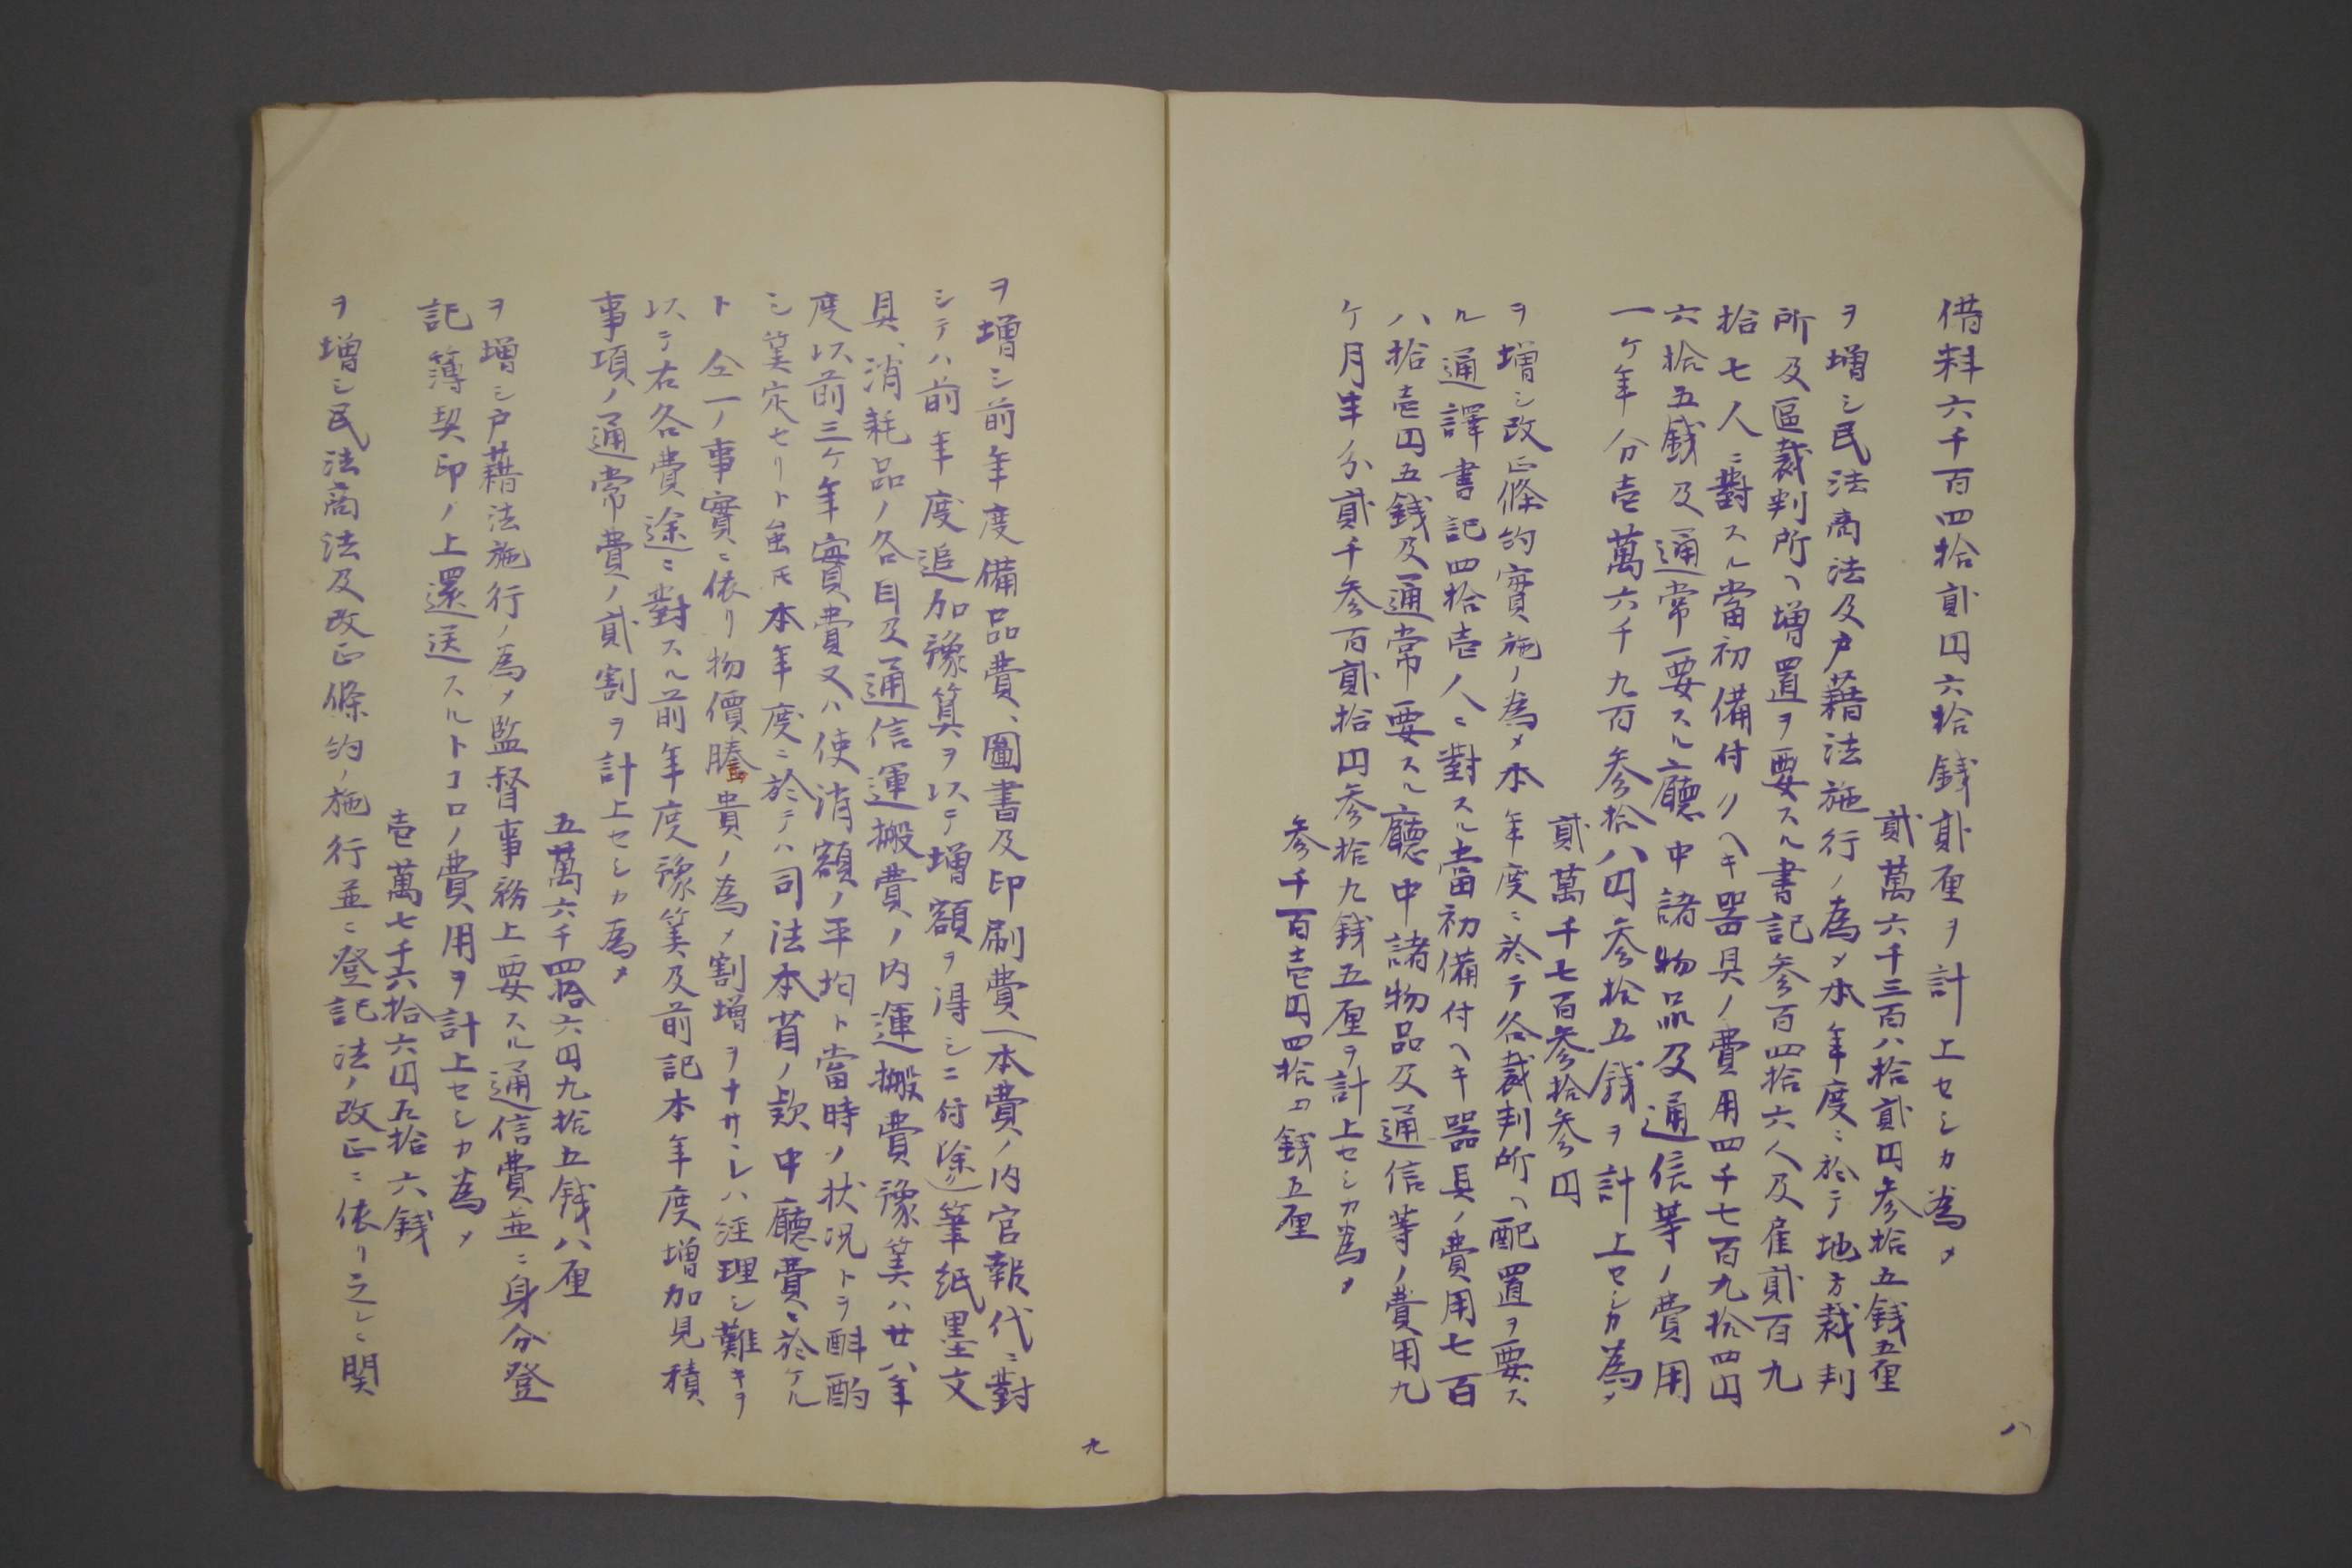 借料六千百四拾貳円六拾銭貳厘ヲ計上セシカ為メ
貳萬六千三百八拾貳円参拾五銭五厘
ヲ増シ民法商法及戸藉法施行ノ為メ本年度ニ於テ地方裁判
所及區裁判所ヘ増置ヲ要スル書記参百四拾六人及雇貳百九
拾七人ニ對スル當初備付クヘキ器具ノ費用四千七百九拾四円
六拾五銭及通常要スル廳中諸物品及通信等ノ費用
一ケ年分壱萬六千九百参拾八円参拾五銭ヲ計上セシカ為メ
貳萬千七百参拾参円
ヲ増シ改正條約實施ノ為メ本年度ニ於テ各裁判所ヘ配置ヲ要ス
ル通譯書記四拾壱人ニ對スル當初備付ヘキ器具ノ費用七百
八拾壱円五銭及通常要スル廳中諸物品及通信等ノ費用九
ケ月半分貳千参百貳拾円参拾九銭五厘ヲ計上セシカ為メ
参千百壱円四拾四銭五厘
八
ヲ増シ前年度備品費、圖書及印刷費(本費ノ内官報代ニ對
シテハ前年度追加豫算ヲ以テ増額ヲ得シニ付除)筆紙墨文
具、消耗品ノ各目及通信運搬費ノ内運搬費豫算ハ廿八年
度以前三ケ年實費又ハ使消額ノ平均ト當時ノ状況トヲ酙酌
シ算定セリト虽モ本年度ニ於テハ司法本省ノ款中廳費ニ於ケル
ト仝一ノ事實ニ依リ物價騰貴ノ為メ割増ヲナサヽレハ経理シ難キヲ
以テ右各費途ニ對スル前年度豫算及前記本年度増加見積
事項ノ通常費ノ貳割ヲ計上セシカ為メ
五萬六千四拾六円九拾五銭八厘
ヲ増シ戸藉法施行ノ為メ監督事務上要スル通信費並ニ身分登
記簿契印ノ上還送スルトコロノ費用ヲ計上セシカ為メ
壱萬七千六拾六円五拾六銭
ヲ増シ民法商法及改正條約ノ施行並ニ登記法ノ改正ニ依リ之レニ関
九